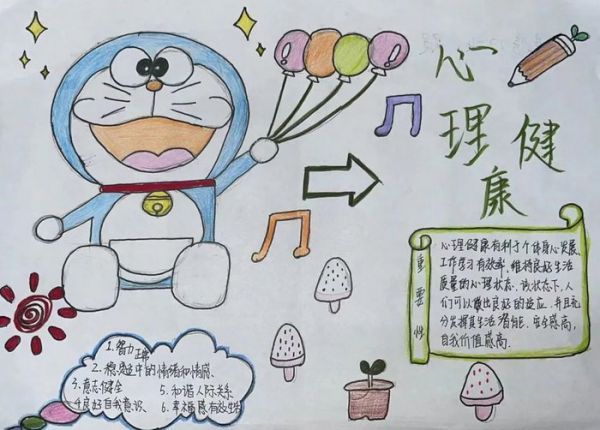 心理健康
重要性
心理健康有利于个体身心发展、
工作学习有效率、维持良好生活
质量的心理状态。该状态下,人
们可以做出良好的反应,并且充
分发挥其生活潜能,安全感高,
自我价值感高。
1.智力正常
2.稳定适中的情绪和情感、
3.意志健全
5.和谐人际关系
4.良好自我意识、
6.幸福感有效生活